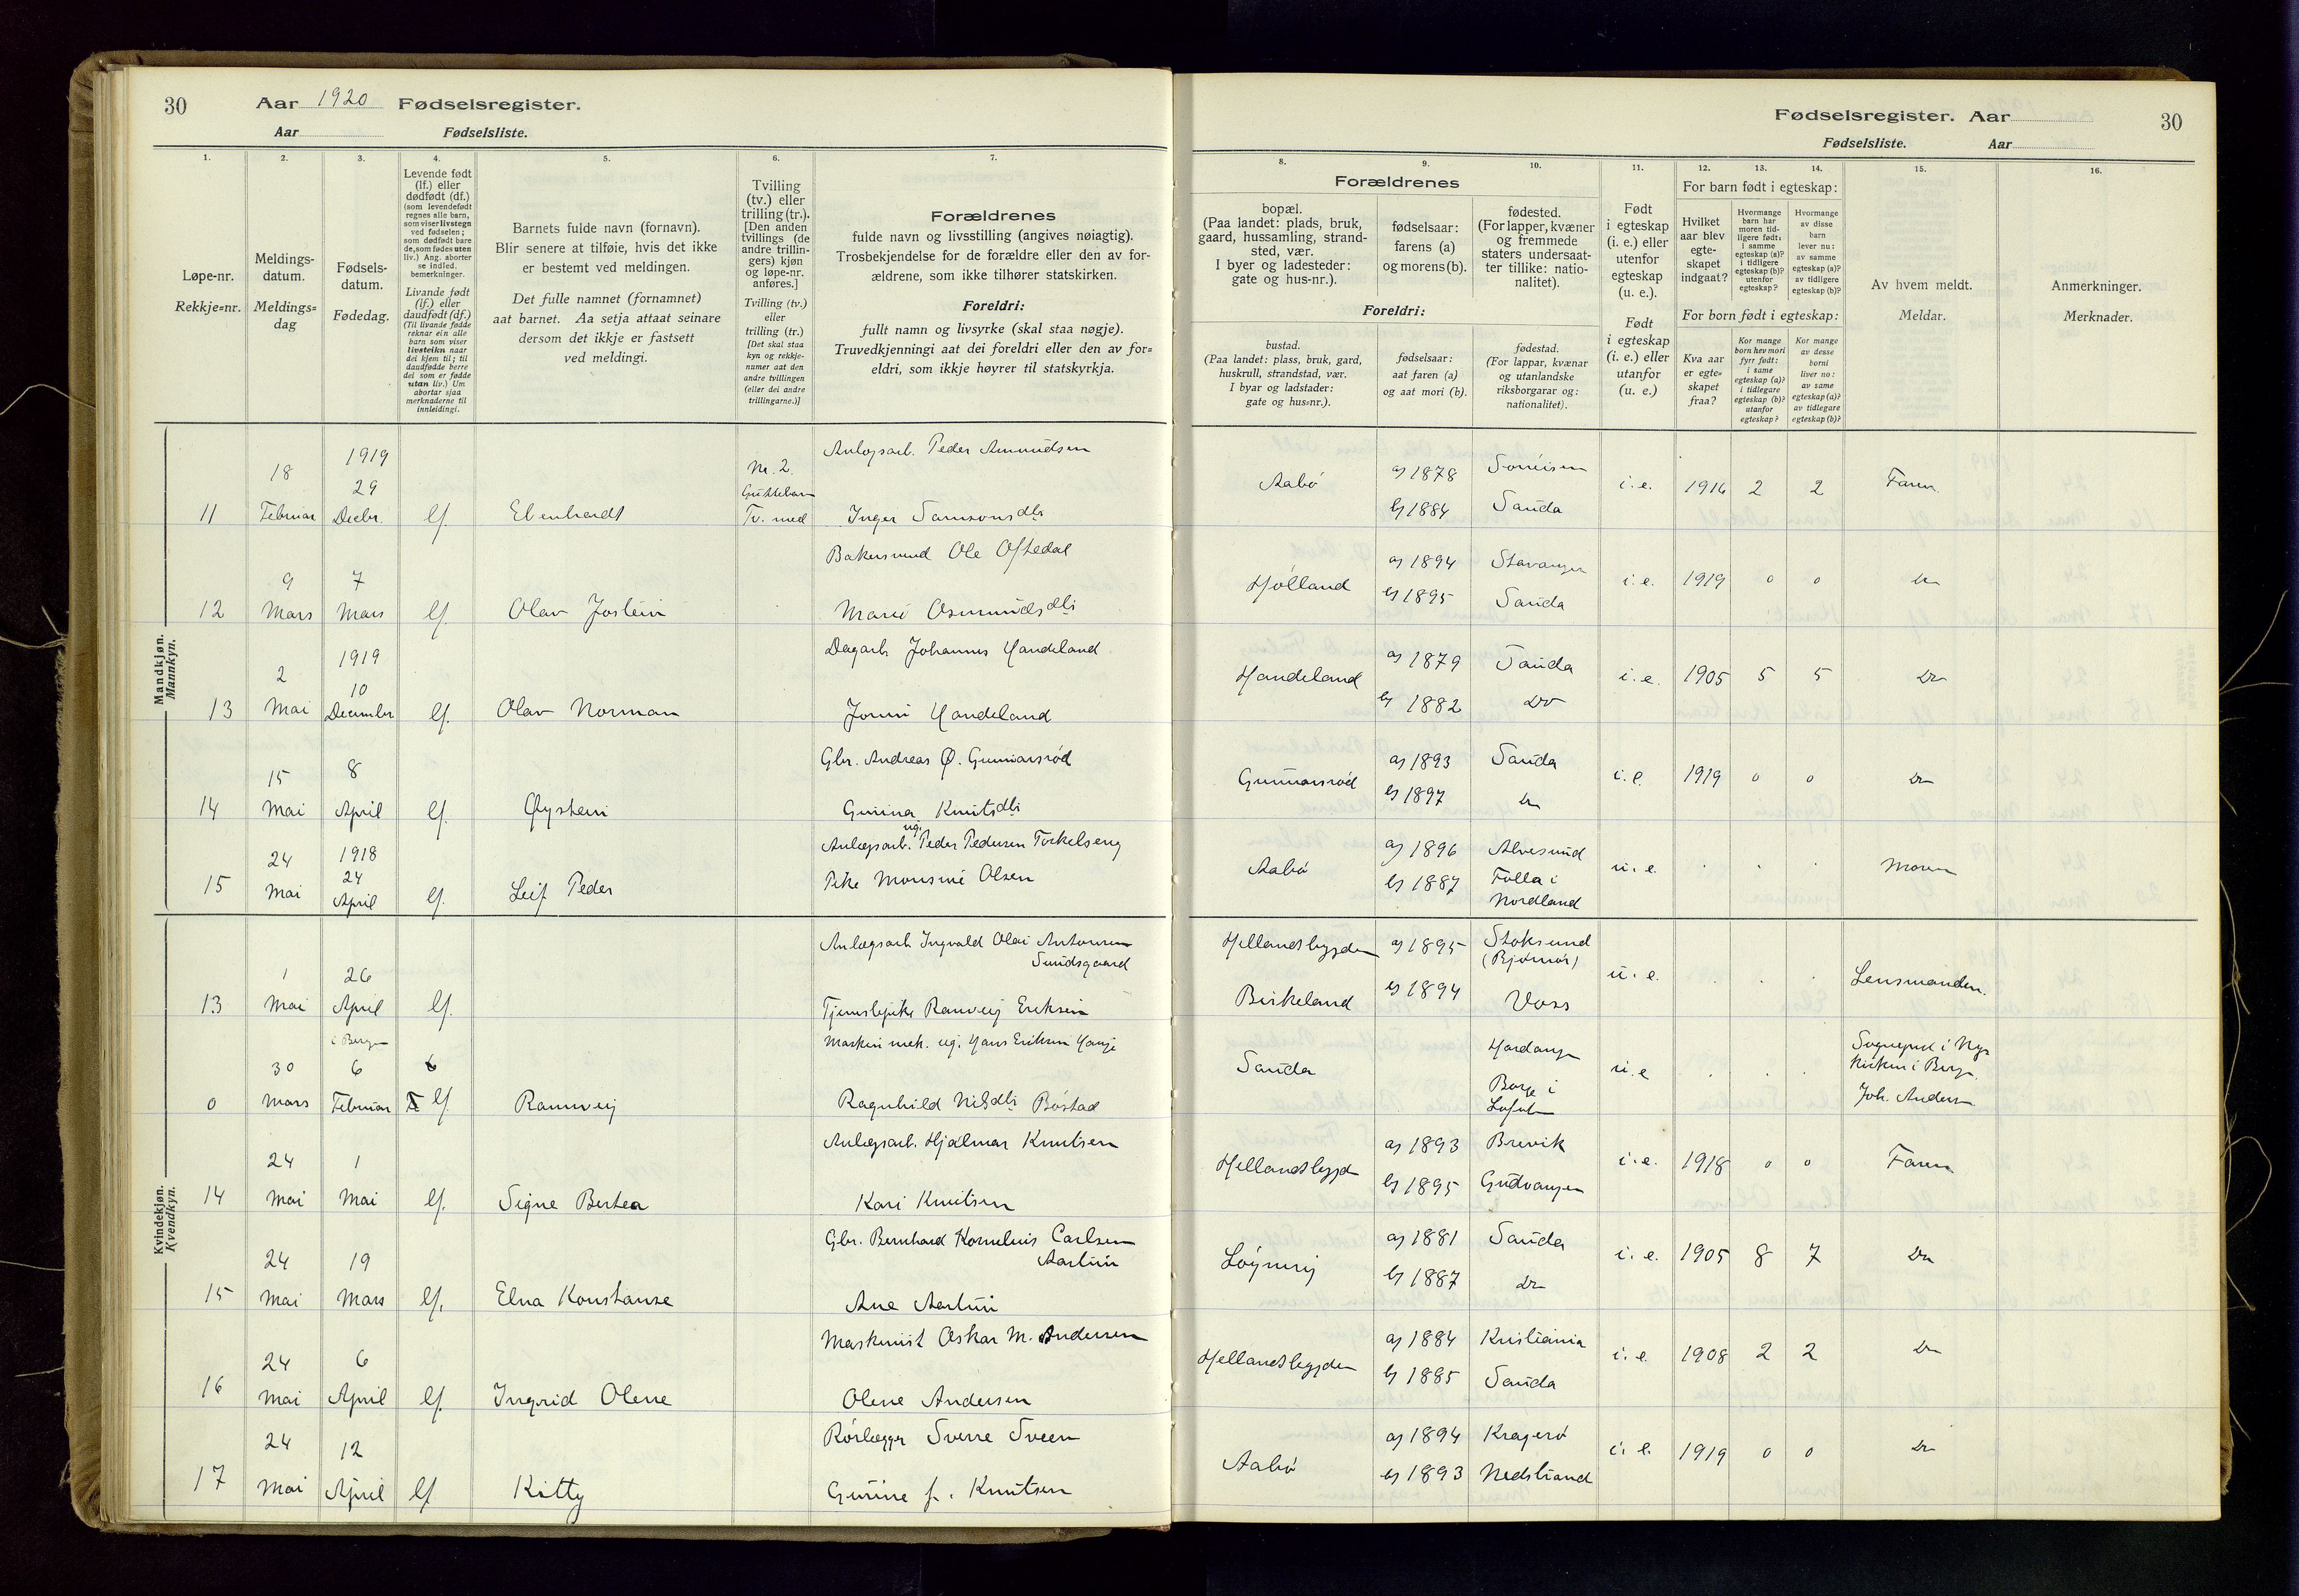 30 Aar 1920 Fødselsregister.
Aar Fødselsliste.
Fødselsregister. Aar 30
Fødselsliste. Aar
1. 2. 3. 4. 5. 6. 7.
8. 9. 10. 11. 12. 13. 14. 15. 16.
Løpe-nr.
Rekkje=nr.
Meldings-
datum.
Meldings=
dag
Fødsels-
datum.
Fødedag.
Levende født
(lf.) eller
dødfødt (df.)
(som levendefødt
regnes alle barn,
som viser livstegn
ved fødselen;
som dødfødt bare
de, som fødes uten
liv.) Ang. aborter
se indled.
bemerkninger.
Livande født
(lf.) eller
daudfødt (df.)
(Til livande fødde
reknar ein alle
barn som viser
livsteikn naar
dei kjem til; til
daudfødde berre
dei som er fødde
utan liv.) Um
abortar sjaa
merknaderne til
innleidingi.
Barnets fulde navn (fornavn).
Blir senere at tilføie, hvis det ikke
er bestemt ved meldingen.
Det fulle namnet (fornamnet)
aat barnet. Aa setja attaat seinare
dersom det ikkje er fastsett
ved meldingi.
Tvilling
(tv.) eller
trilling (tr.).
[Den anden
tvillings (de
andre trillin-
gers) kjøn
og løpe-nr.
anføres.]
Tvilling (tv.)
eller
trilling (tr.)
[Det skal staa
kyn og rekkje-
numer aat den
andre tvillingen
(eller dei andre
trillingarne.)]
Forældrenes
fulde navn og livsstilling (angives nøiagtig).
Trosbekjendelse for de forældre eller den av for-
ældrene, som ikke tilhører statskirken.
Foreldri:
fullt namn og livsyrke (skal staa nøgje).
Truvedkjenningi aat dei foreldri eller den av for=
eldri, som ikkje høyrer til statskyrkja.
Forældrenes
bopæl.
(Paa landet: plads, bruk,
gaard, hussamling, strand-
sted, vær.
I byer og ladesteder:
gate og hus-nr.).
fødselsaar:
farens (a)
og morens (b).
fødested.
(For lapper, kvæner
og fremmede
staters undersaat-
ter tillike: natio-
nalitet).
Foreldri:
bustad.
(Paa landet: plass, bruk, gard,
huskrull, strandstad, vær.
I byar og ladstader:
gate og hus=nr.).
fødselsaar:
aat faren (a)
og aat mori (b).
fødestad.
(For lappar, kvænar
og utanlandske
riksborgarar og:
nationalitet).
Født
i egteskap
(i. e.) eller
utenfor
egteskap
(u. e.).
Født
i egteskap
(i. e.) eller
utanfor
(u. e.)
For barn født i egteskap:
Hvilket
aar blev
egte-
skapet
indgaat?
Hvormange
barn har
moren tid-
ligere født:
i samme
egteskap (a)?
i tidligere
egteskap (b)?
utenfor
egteskap?
Hvormange
av disse
barn
lever nu:
av samme
egteskap (a)?
av tidligere
egteskap (b)?
For born født i egteskap:
Kva aar
er egte=
skapet
fraa?
Kor mange
born hev mori
fyrr født:
i same
egteskap (a)?
i tidlegare
egteskap (b)?
utanfor
egteskap?
Kor mange
av desse
borni
liver no:
av same
egteskap (a)?
av tidlegare
egteskap (b)?
Av hvem meldt.
Meldar.
Anmerkninger.
Merknader.
Mandkjøn.
Mankyn.
11 18 Februar 1919 29 Decbr. lf. Ebenhardt Nr. 2. Guttebarn Tv. med
Anlegsarb. Peder Amundsen
Inger Samsonsdtr
Aabø a) 1878 Sørreisen b) 1884 Sauda i. e. 1916 2 2 Faren.
12 9 Mars 7 Mars lf. Olav Jostein
Bakersvend Ole Oftedal
Marie Osmundsdtr
Hølland a) 1894 Stavanger b) 1895 Sauda i. e. 1919 0 0 Do
13 2 Mai 1919 10 December lf. Olav Norman
Dagarb. Johannes Handeland
Jonni Handeland
Handeland a) 1879 Sauda b) 1882 Do i. e. 1905 5 5 Do
14 15 Mai 8 April lf. Øystein
Gbr. Andreas Ø. Gunnarsrød
Gurina Knutsdtr
Gunnarsrød a) 1893 Sauda b) 1897 Do i. e. 1919 0 0 Do
15 24 Mai 1918 24 April lf. Leif Peder
Anlegsarb. ug. Peder Pedersen Torkelseng
Pike Monsine Olsen
Aabø a) 1896 Alvesund b) 1887 Folla i Nordland u. e. Moren
Kvindekjøn.
Kvendkyn.
13 1 Mai 26 April lf.
Anlegsarb Ingvald Olai Antonsen
Sundsgaard
Tjenstepike Ranveig Eriksen
Hellandsbygden a) 1895 Stoksund (Bjørnør)
Birkeland b) 1894 Voss u. e. Lensmanden.
0 30 Mars i Bergen 6 Februar lf. Rannveig
Maskin mek. ug. Hans Eriksen Hauge
Ragnhild Nilsdtr Bøstad
Sauda Hardanger Borge i Lofoten u. e
Sogneprest i Ny-
kirken i Bergen.
Joh. Andersen
14 24 Mai 1 Mai lf. Signe Bertea
Anlegsarb. Hjalmar Knutsen
Kari Knutsen
Hellandsbygd a) 1893 Brevik b) 1895 Gudvangen i. e. 1918 0 0 Faren
15 24 Mai 19 Mars lf. Elna Konstanse
Gbr. Bernhard Kornelius Carlsen
Aartun
Ane Aartun
Løyning a) 1881 Sauda b) 1887 Do i. e. 1905 8 7 Do
16 24 Mai 6 April lf. Ingrid Olene
Maskinist Oskar M. Andersen
Olene Andersen
Hellandsbygden a) 1884 Kristiania b) 1885 Sauda i. e. 1908 2 2 Do
17 24 Mai 12 April lf Kitty
Rørlegger Sverre Sveen
Gurine f. Knutsen
Aabø a) 1894 Kragerø b) 1893 Nedstrand i. e. 1919 0 0 Do